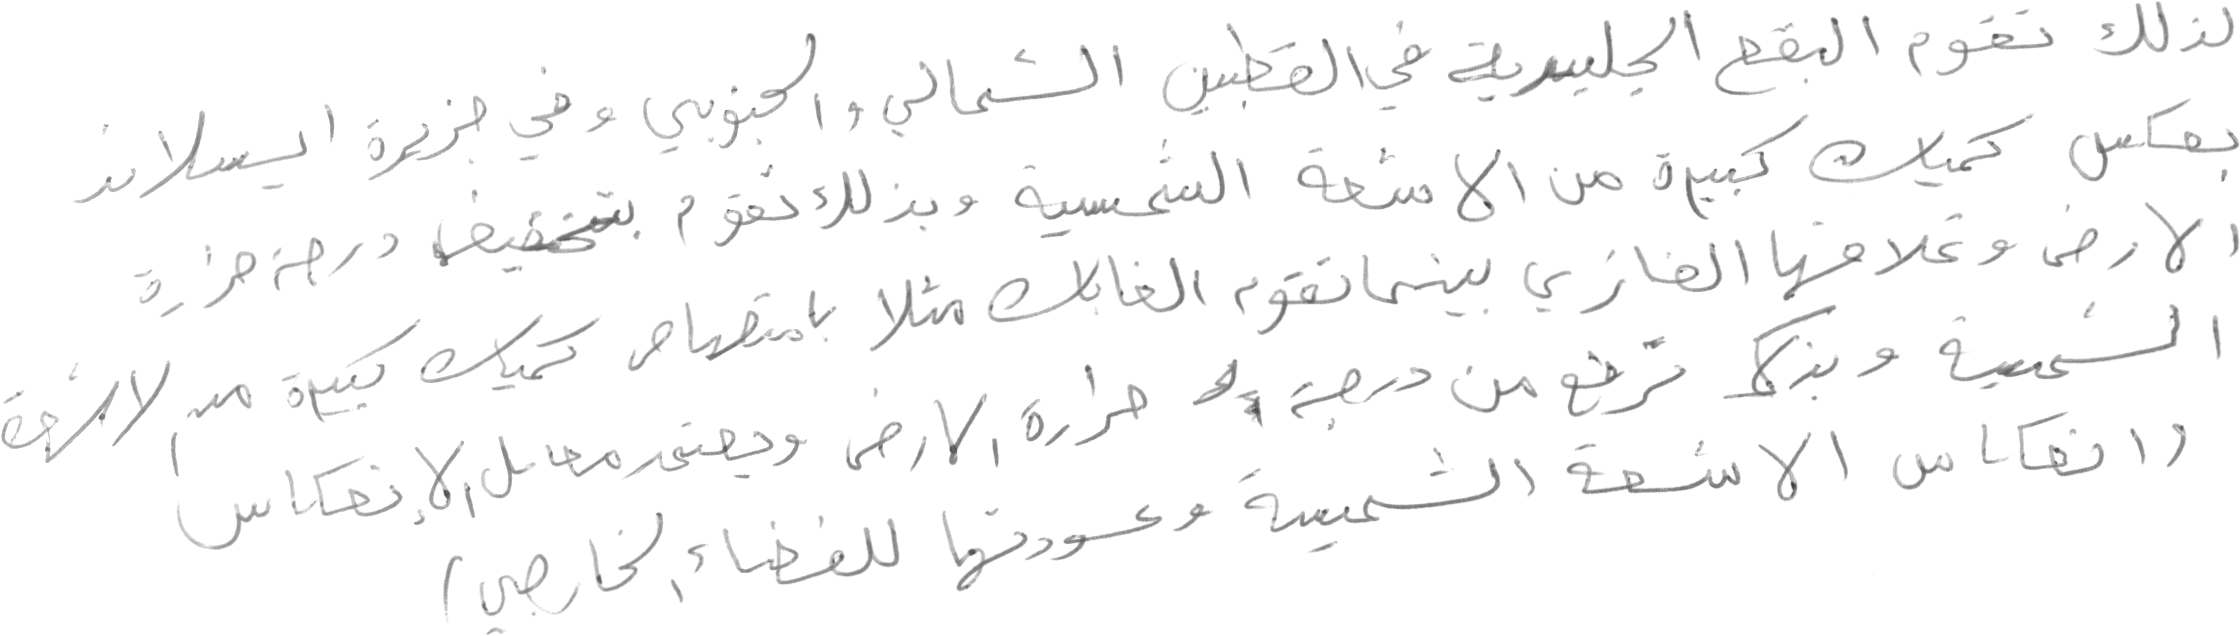 لذلك تقوم البقع الجليدية في القطبين الشمالي والجنوبي وفي جزيرة ايسلاند
بعكس كميات كبيرة من الاشعة الشمسية وبذلك تقوم بتخفيض درجة حرارة
الارض وغلافها الغازي بينما تقوم الغابات مثلا بامتصاص كميات كبيرة من الاشعة
الشمسية وبذلك ترفع من درجة حرارة الارض ويعتبر معامل الإنعكاس (
وانعكاس الاشعة الشمسية وعودتها للفضاء الخارجي)